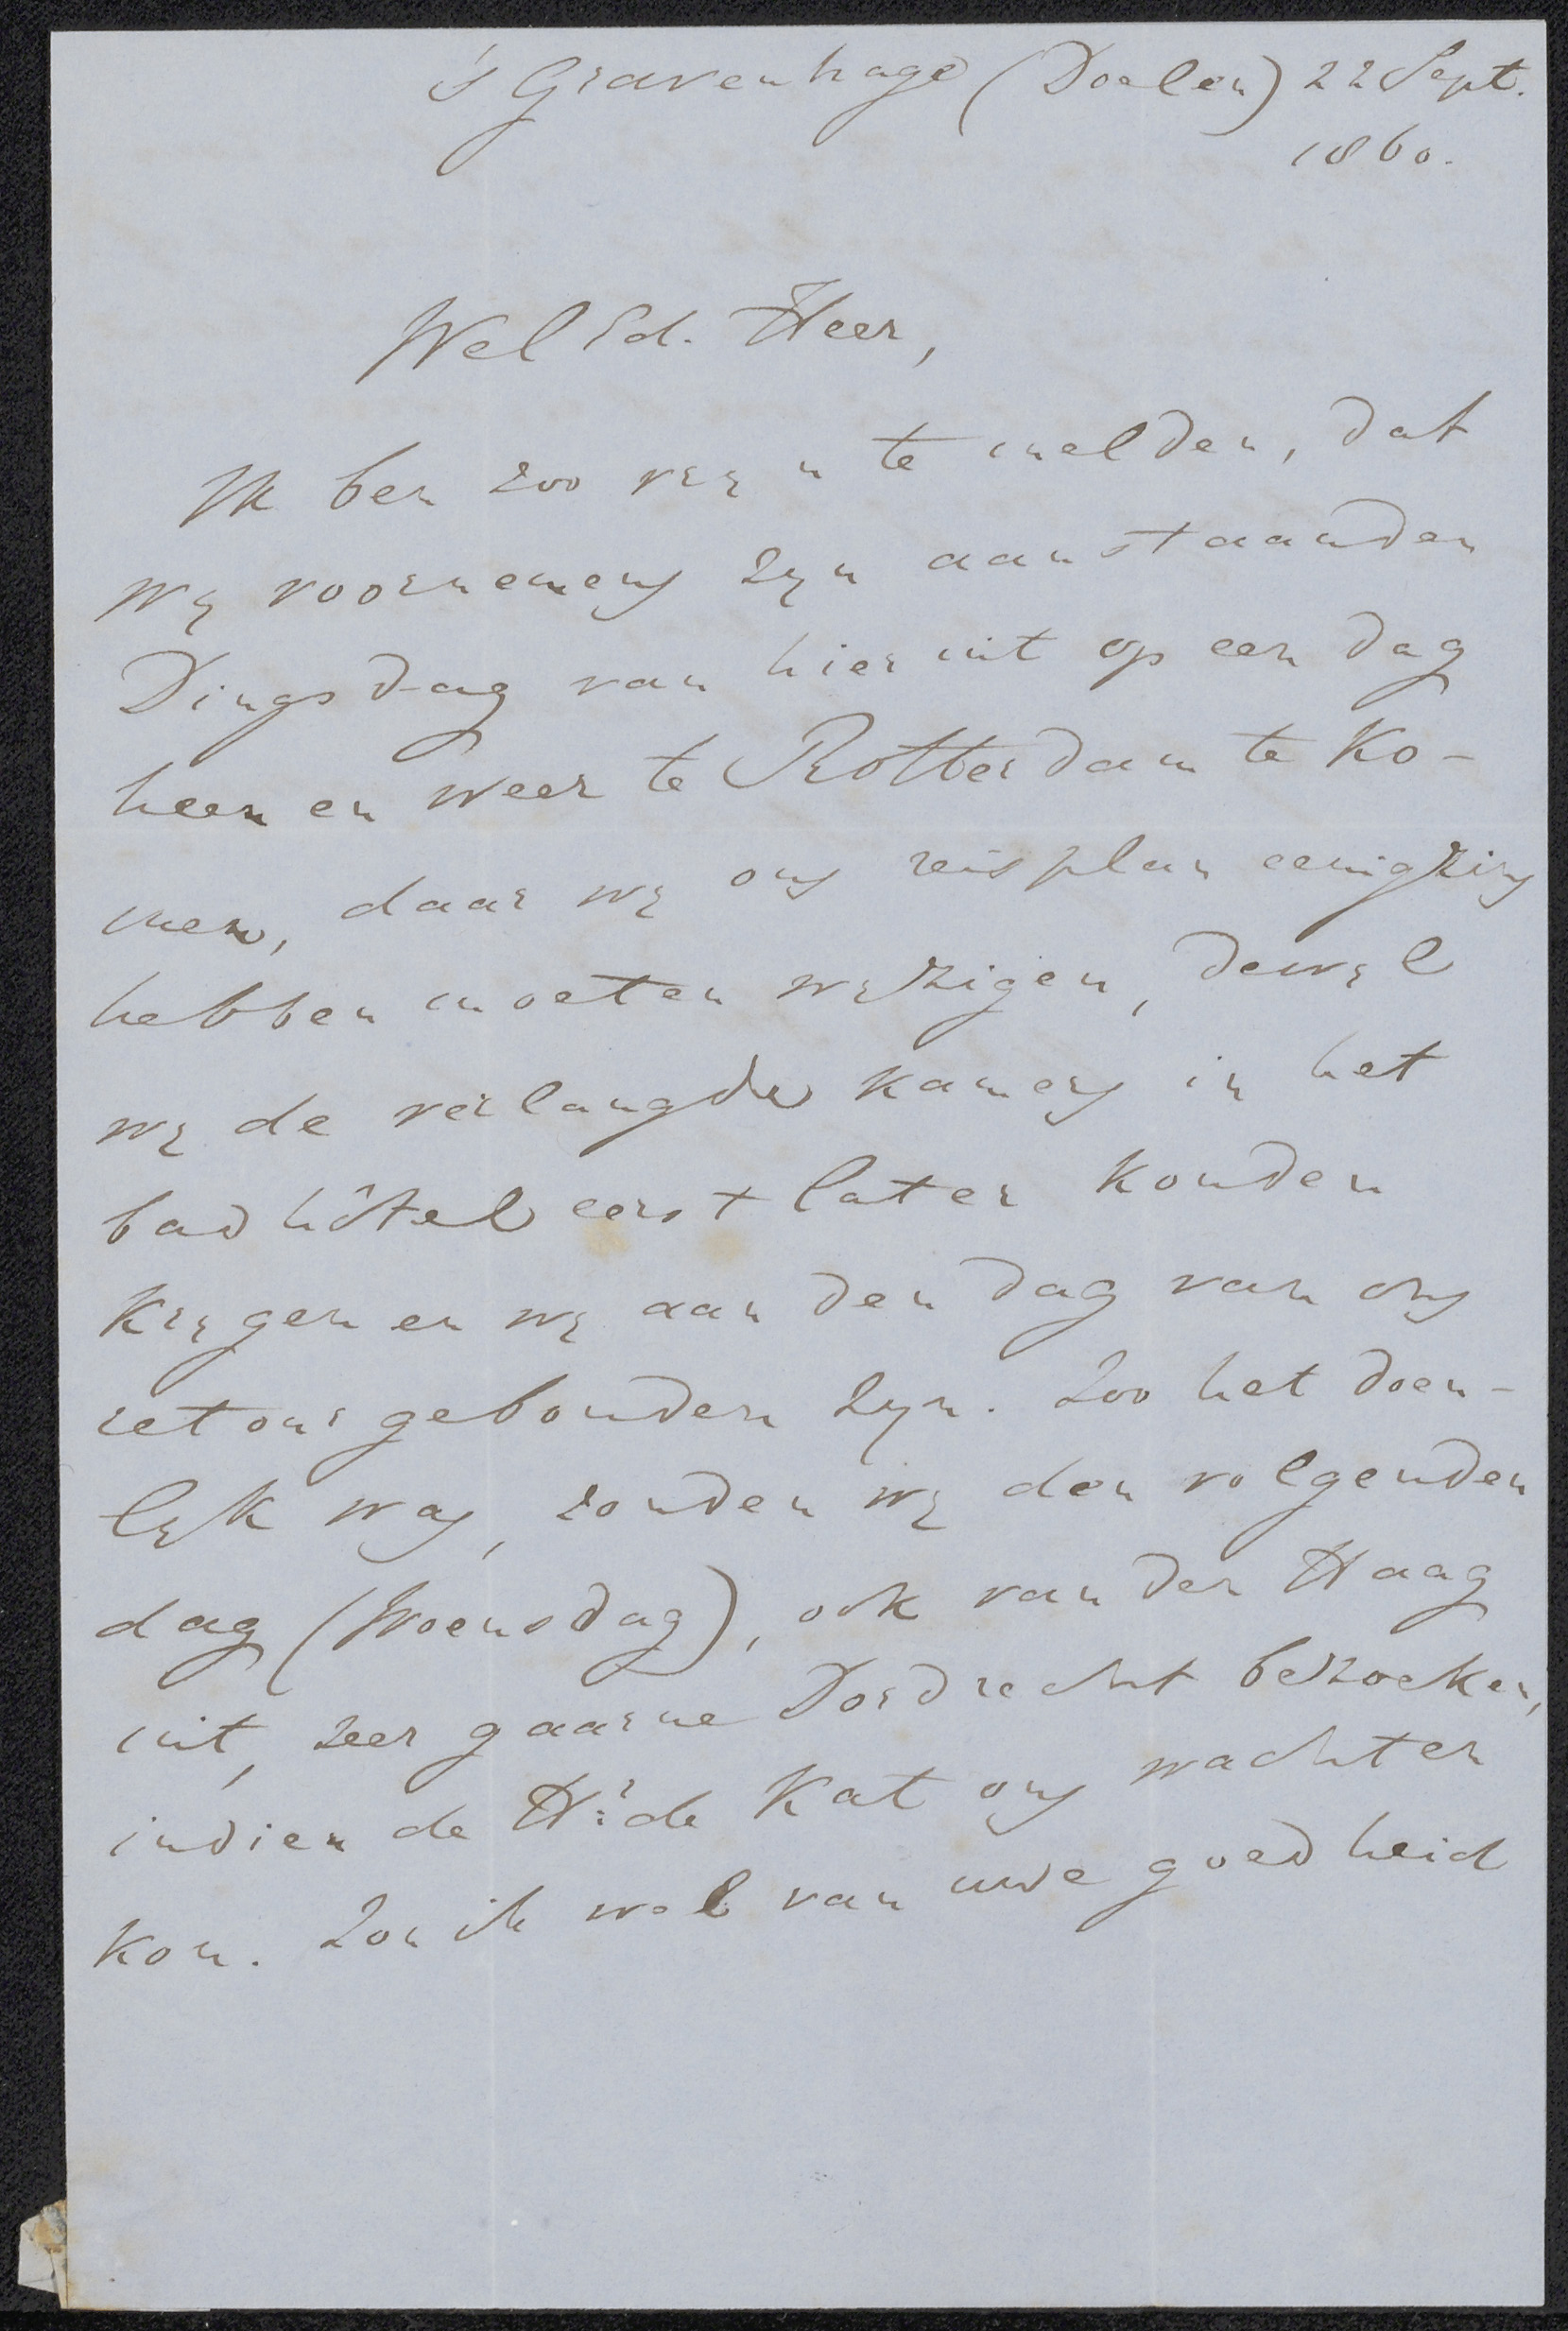 's Gravenhage (Doelen) 22 Sept.
1860.
Wel Ed. Heer,
Ik ben zoo vrij u te melden, dat
wij voornemens zijn aanstaanden
Dingsdag van hier uit op een dag
heen en weer te Rotterdam te ko-
men, daar wij ons reisplan eenigzins
hebben moeten wijzigen, dewijl
wij de verlangde kamers in het
badhôtel eerst later konden
krijgen en wij aan den dag van ons
retour gebonden zijn. Zoo het doen-
lijk was, zouden wij den volgenden
dag (Woensdag), ook van den Haag
uit, zeer gaarne Dordrecht bezoeken,
indien de Hr. de Kat ons wachten
kon. Zou ik wel van uwe goedheid